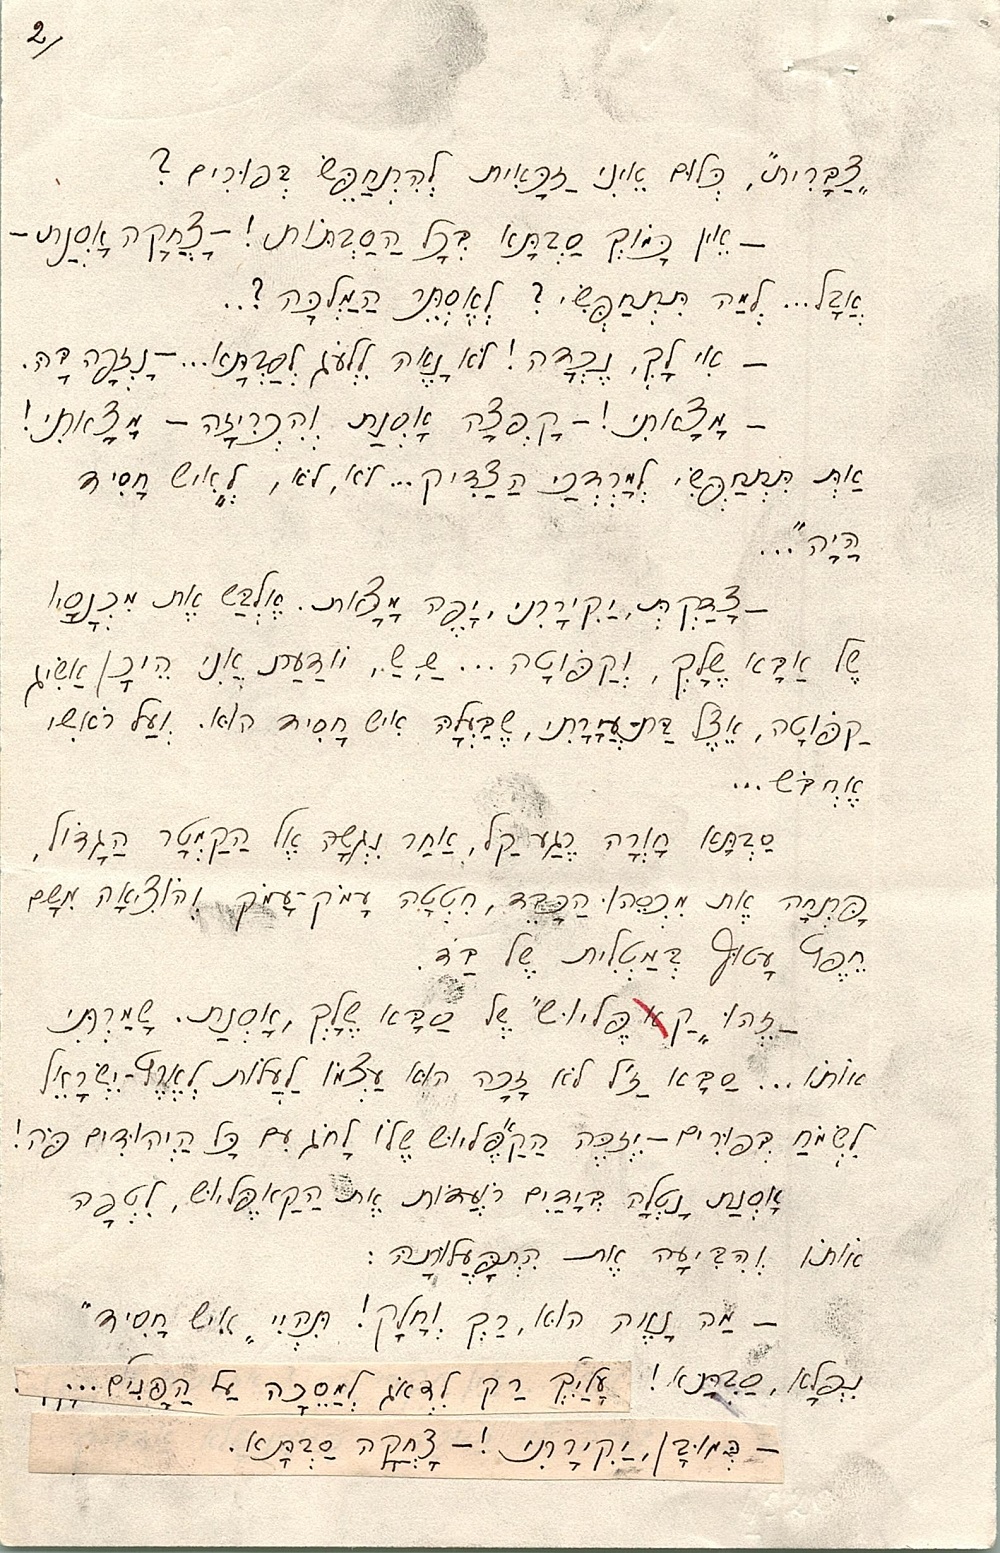 2/
„צַבָּרִית", כְּלוּם אֵינֶנִּי זַכָּאִית לְהִתְחַפֵּשׂ בְּפוּרִים?
– אֵין כָּמוֹךְ סַבְתָּא בְּכָל הַסַּבְתּוֹת! – צָחֲקָה אָסְנַת –
אֲבָל... לְמָה תִּתְחַפְּשִׂי? לְאֶסְתֵּר הַמַּלְכָּה?..
– אִי לָךְ, נֶכְדָּה! לֹא נָאֶה לְלַעֵג לְסַבְתָּא... – נָזְפָה בָּהּ.
– מָצָאתִי! – קָפְצָה אָסְנַת וְהִכְרִיזָה – מָצָאתִי!
אַתְּ תִּתְחַפְּשִׂי לְמָרְדְּכַי הַצַּדִּיק... לֹא, לֹא, לְ„אִישׁ חָסִיד
הָיָה"...
– צָדַקְתְּ, יַקִּירָתִי, יָפֶה מָצָאת. אֶלְבַּשׁ אֶת מִכְנָסָיו
שֶׁל אַבָּא שֶׁלָּךְ, וְקַפּוֹטָה... שַׁ, שַׁ, יוֹדַעַת אֲנִי הֵיכָן אַשִּׂיג
קַפּוֹטָה, אֵצֶל בַּת-עֲיָרָתִי, שֶׁבַּעְלָהּ אִישׁ חָסִיד הוּא. וְעַל רֹאשִׁי
אֶחְבֹּשׁ...
סַבְתָּא חָוְרָה רֶגַע קַל, אַחַר נִגְּשָׁה אֶל הַקִּמְטָר הַגָּדוֹל,
פָּתְחָה אֶת מִכְסֵהוּ הַכָּבֵד, חִטְּטָה עָמֹק-עָמֹק וְהוֹצִיאָה מִשָּׁם
חֵפֶץ עָטוּף בְּמַטְלִית שֶׁל בַּד.
– זֶהוּ „קַאפֶּליוּשׁ" שֶׁל סַבָּא שֶׁלָּךְ, אָסְנַת. שָׁמַרְתִּי
אוֹתוֹ... סַבָּא זַ"ל לֹא זָכָה הוּא עַצְמוֹ לַעֲלוֹת לְאֶרֶץ-יִשְׂרָאֵל
לִשְׂמֹחַ בְּפוּרִים – יִזְכֶּה הַקַּאפֶּליוּשׁ שֶׁלּוֹ לָחֹג עִם כָּל הַיְּהוּדִים פֹּה!
אָסְנַת נָטְלָה בְּיָדַיִם רוֹעֲדוֹת אֶת הַקַּאפֶּליוּשׁ, לִטְּפָה
אוֹתוֹ וְהִבִּיעָה אֶת הִתְפַּעֲלוּתָהּ:
– מַה נָּאֶה הוּא, רַךְ וְחָלָק! תִּהְיִי „אִישׁ חָסִיד"
נִפְלָא, סַבְתָּא! עָלַיִךְ רַק לִדְאֹג לְמַסֵּכָה עַל הַפָּנִים...
– כַּמּוּבָן, יַקִּירָתִי! – צָחֲקָה סַבְתָּא.